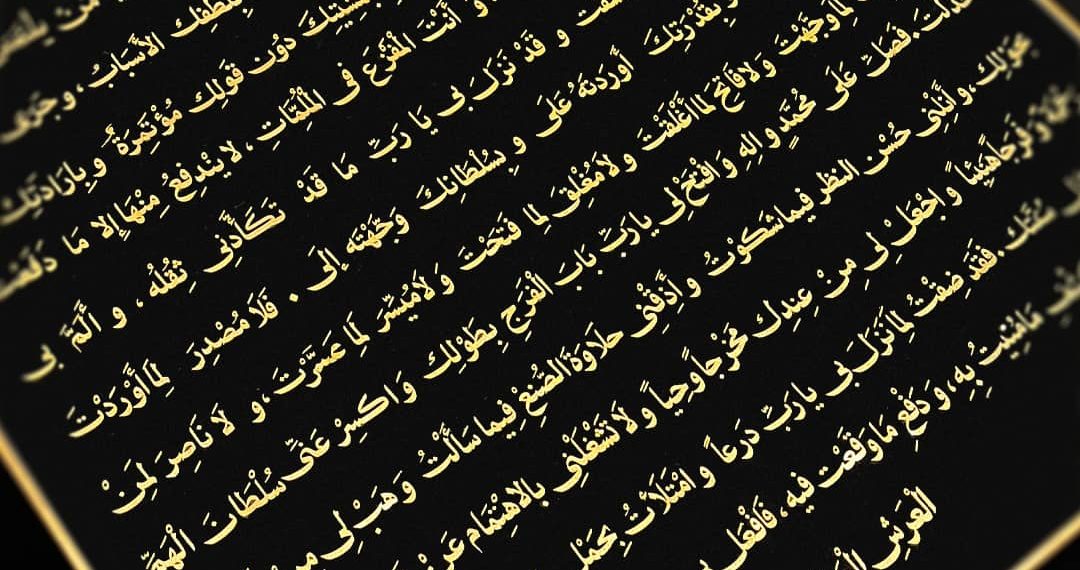 بلطفك الأسباب، و جرى
دُون قَولِك مُؤْتَمِرَةٌ وبِإرَادَتِكَ
و أَنْتَ الْمَفْزَعُ فى الْمُلِمَّاتِ، لايَنْدَفِعُ مِنْهَا إلا مَا دَفَعْتَ
و قَدْ نَزَلَ بى يَا رَبِّ مَا قَدْ تَكَأَّدَنِى ثِقْلُهُ، و أَلَمَّ بى
وبِقُدْرَتِكَ أَورَدتَهُ عَلَى و بِسُلْطَانِكَ وَجَّهْتَه اِلَى . فَلَا مُصْدِرَ لِمَا أَوْرَدْتَ
لِمَا وَجَّهْتَ وَلَافَاتِحَ لِمَا أَغْلَقْتَ وَلَامُغْلِقَ لِمَا فَتَحْتَ وَلَامُيَسِّرَ لِمَا عَسَّرْتَ، و لَا نَاصِرَ لِمَنْ
خَذَلتَ. فَصَلِّ عَلَى مُحَمَّدٍ و الِهِ وَافْتَحْ لِى يارَبِّ بَابَ الْفَرَجِ بِطَوْلِكَ وَاكسِرْ عَنّى سُلْطَانَ الْهَمِّ
بِحَوْلِك، و أَنِلْنِى حُسْنَ النظر فيماشكوتُ و أَذِقْنِى حَلاوَةَ الصُّنْعِ فِيماسَأَلْتُ وَهَبْ لِى مِن
وفَرَجاًهَنِيئاً واجْعَلْ لِى مِنْ عِندِك مَخْرَجاًوحِياً ولَا تَشْغَلْنِى بالاهْتِمَامِ عَنْ
فَقَد ضِقْتُ لِمَا نَزَلَ بى يا رَبِّ ذَرعاً و امْتَلَأتُ بحَمْلِ
مَامُنِيتُ بِهِ، وَدَفْعِ مَاوَقَعْت فيهِ، فَافْعَل
الْعَرْشِ